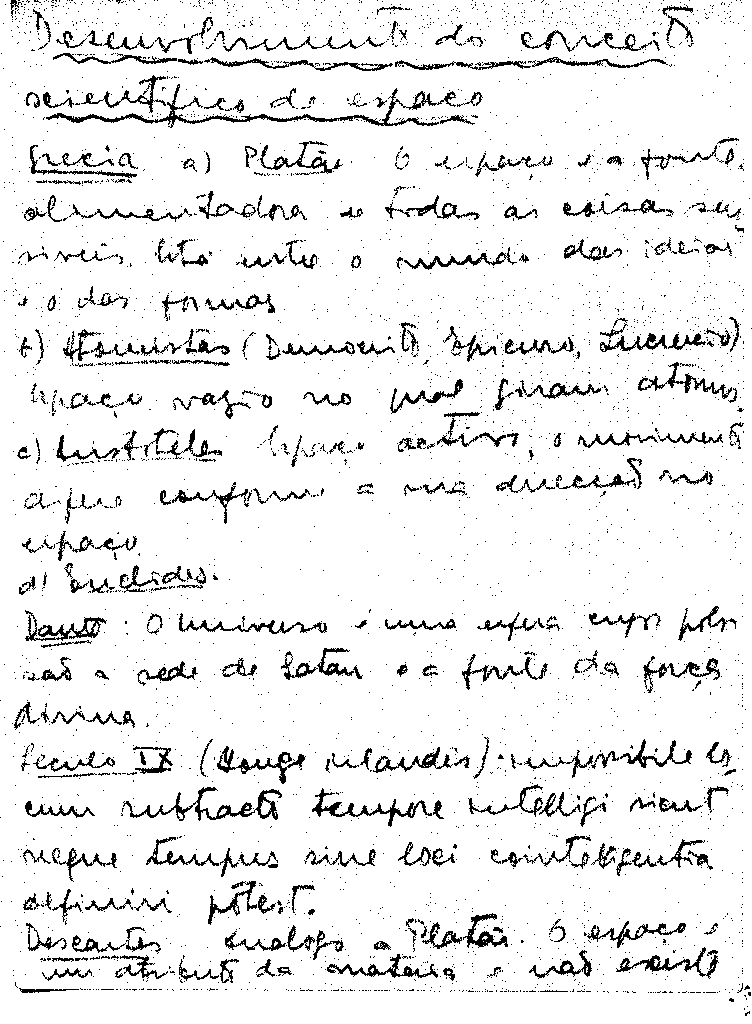 Desenvolvimento do conceito
scientifico de espaço
Grecia a) Platão O espaço e a fonte
alimentadora de todas as coisas sen
siveis. Está entre o mundo das ideias
e o das formas
b) Atomistas (Democrito, Epicuro, Lucrecio)
Espaço vazio no qual giram atomos.
c) Aristoteles Espaço activo, o movimento
difere conforme a sua direcção no
espaço
d) Euclides.
Dante: O Universo é uma esfera cujos polos
são a sede de Satan e a fonte da força
divina.
Seculo IX (Monge irlandês). impossibile lo
cum subtracto tempore intelligi sicut
neque tempus sine loci cointelligentia
definiri potest.
Descartes analogo a Platão. O espaço é
um atributo da materia e não existe